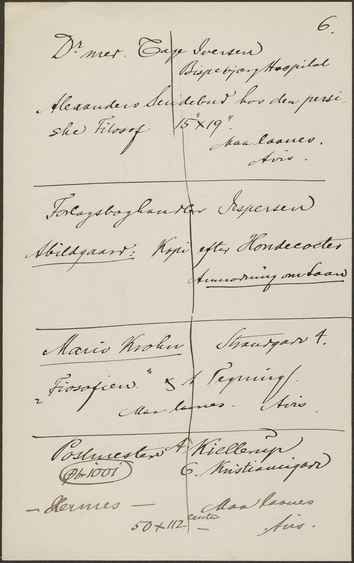 6.
Dr med. Tage Iversen
Bispebjerg Hospital
Alexanders Sendebud hos den persi
ske Filosof 15" x 19".
Maa laanes.
Avis.
Forlagsboghandler Jespersen
Abildgaard: Kopi efter Hondecoeter
Anmodning om Laan
Mario Krohn Strandgade 4.
"Filosofien" & 1 Tegning.
Maa laanes. Avis.
Postmester A. Kiellerup
Ptr 1001 6. Kristianiagade
- Hermes - Maa laanes
50 x 112 centm Avis.